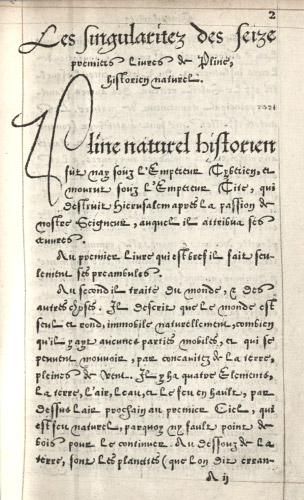 2
Les singularitez des seize
premiers livres de Pline,
historien naturel.
Pline naturel historien
fut nay souz l'Empereur Tyberien, et
mourut souz l'Empereur Tite, qui
destruit Hierusalem apres la passion de
nostre Seigneur, auquel il attribua ses
œuvres.
Au premier livre qui est bref il fait seu
lement ses preambules.
Au second il traite du monde, & des
autres choses. Il descrit que le monde est
seul et rond, immobile naturellement, combien
qu'il y ayt aucunes parties mobiles, et qui se
peuvent mouvoir, par concavitez de la terre,
pleines de vent. Il y ha quatre Elements,
la terre, l'air, l'eau, et le feu en hault, par
dessus l'air prochain au premier Ciel, qui
est feu naturel, parquoy ny fault point de
bois pour le continuer. Au dessouz de la
terre, sont les planettes (que lon dit erran-
A ij